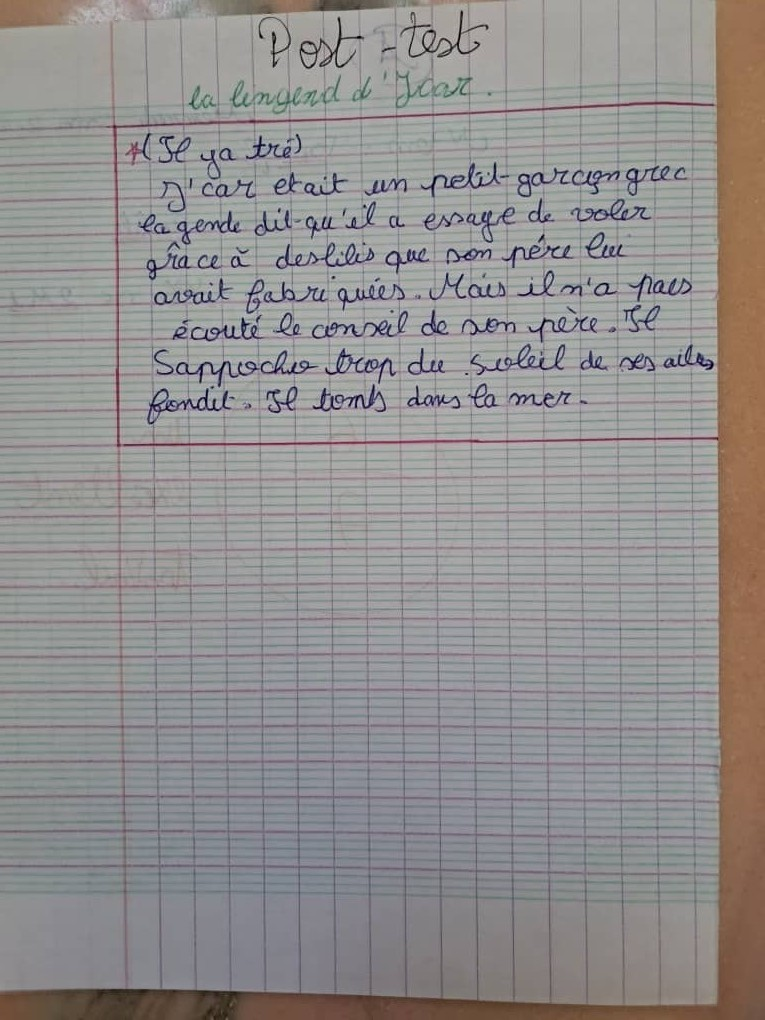 Post-test
la lingend d'Icar.
*(Il ya tré)
I'car etait un petit-garçongrec
la gende dit-qu'il a essaye de voler
grâce à deslilis que son père lui
avait fabriquées. Mais il n'a paes
écouté le conseil de son père. Il
Sappocho trop du soleil de ses ailes
fondit. Il tomb dans la mer.